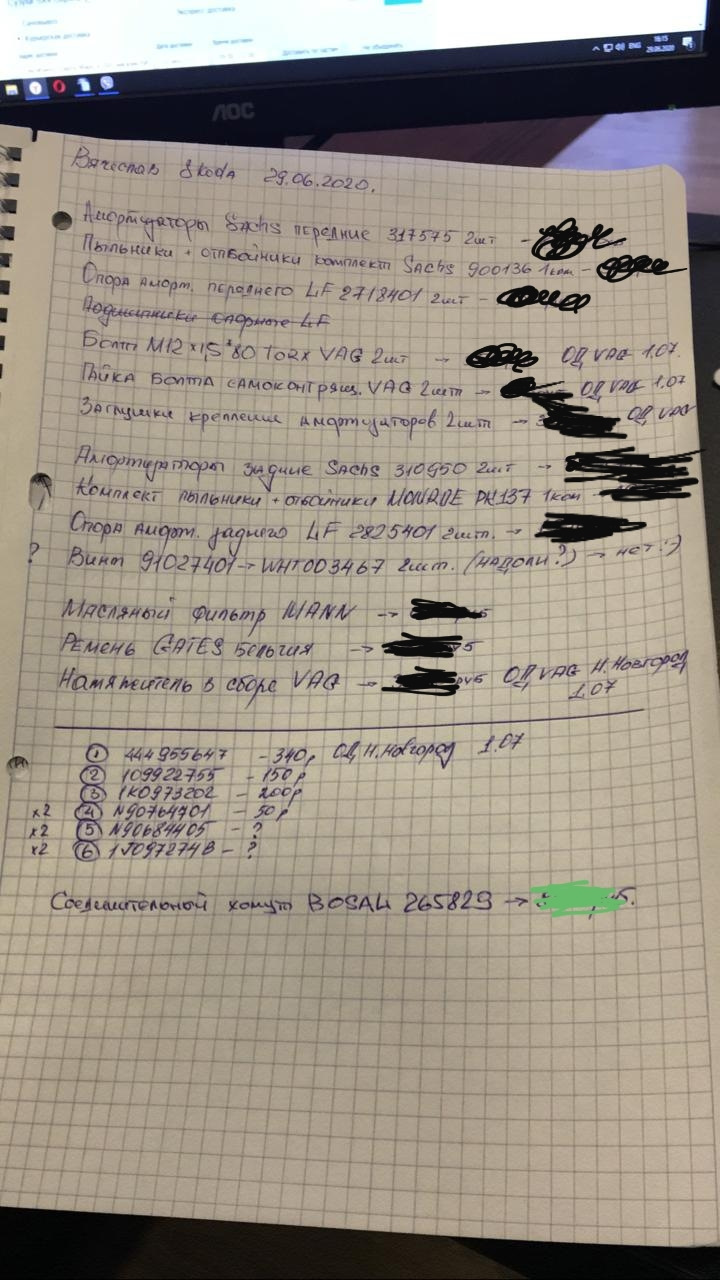 Самовывоз
Курьерская доставка
Экспресс доставка
Дата доставки
Время доставки
Доставить по частям
Не объединять
ENG
16:15
29.06.2020
AOC
Вячеслав Skoda 29.06.2020.
Амортизаторы Sachs передние 317575 2шт -
Пыльники + отбойники комплект Sachs 900136 1ком -
Опора аморт. переднего LF 2718401 2шт -
Подшипники опорные LF
Болт M12*1,5*80 Torx VAG 2шт → ОД VAG 1.07.
Гайка болта самоконтрящ. VAG 2шт → ОД VAG 1.07
Заглушки крепление амортизаторов 2шт → ОД VAG
Амортизаторы задние Sachs 310950 2шт →
Комплект пыльники + отбойники MONROE PK137 1ком →
Опора аморт. заднего LF 2825401 2шт. →
? Винт 91027401 → WHT003467 2шт. (надо ли?) → нет :)
Масляный фильтр MANN →
Ремень GATES Бельгия →
Натяжитель в сборе VAG → руб ОД VAG Н.Новгород
1.07
① 444955647 - 340р ОД Н.Новгород 1.07
② 109922755 - 150р
③ 1K0973202 - 200р
x2 ④ N90764701 - 50р
x2 ⑤ N90684405 - ?
x2 ⑥ 1J097274B - ?
Соединительный хомут BOSAL 265829 →